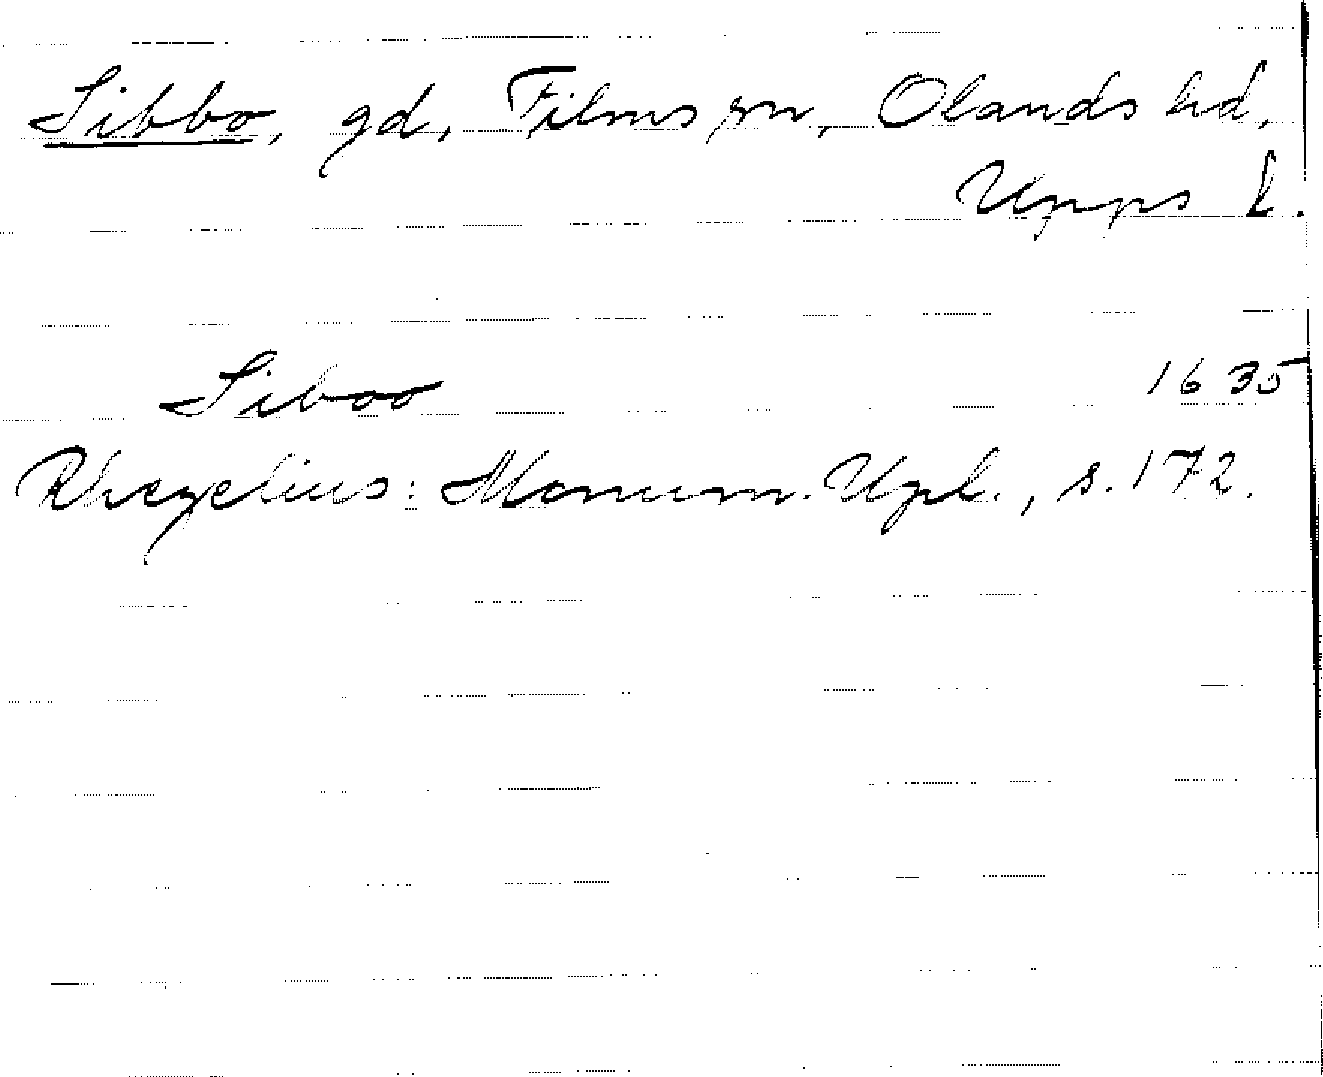 Sibbo, gd, Films sn, Olands hd,
Upps l.
Siboo 1635
Rhezelius: Monum. Upl., s. 172.